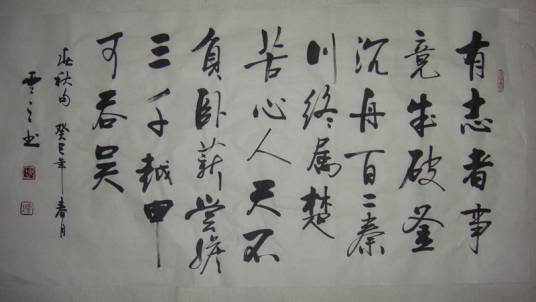 有志者事
竟成破釜
沉舟百二秦
川终属楚
苦心人天不
負卧薪尝膽
三千越甲
可吞吴
春秋句 癸巳年春月
书